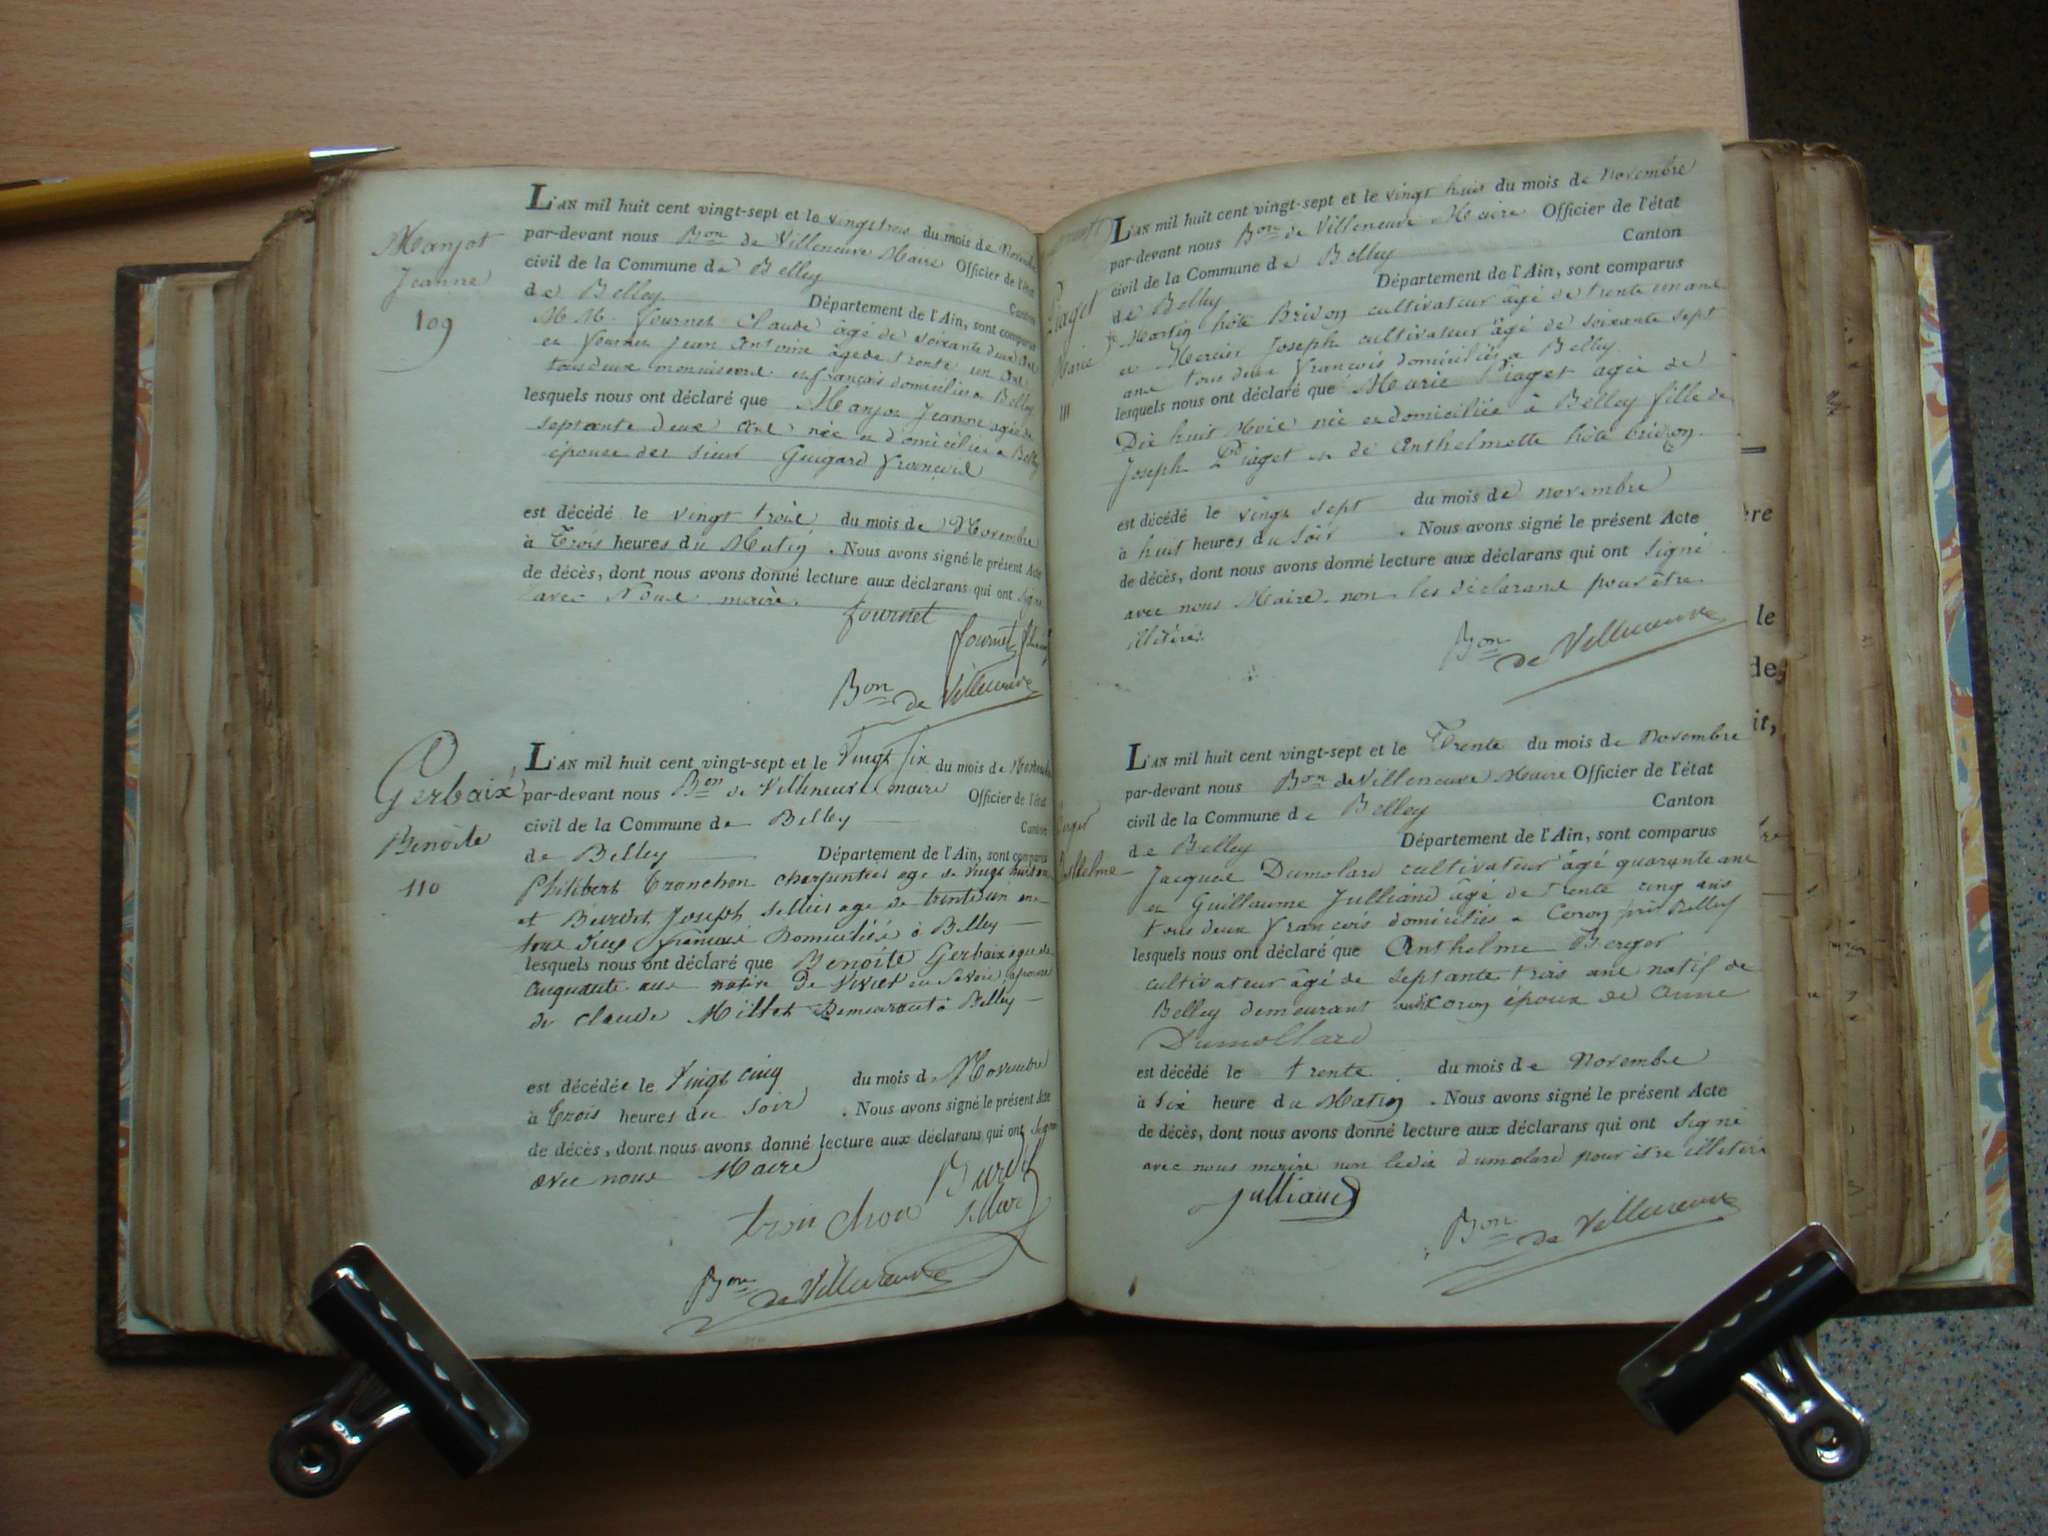 Manjot
Jeanne
109
L'AN mil huit cent vingt-sept et le vingt trois du mois de Novembre
par-devant nous Bon de Villeneuve Maire Officier de l'état
civil de la Commune de Belley Canton
de Belley Département de l'Ain, sont comparus
M. M. fournet Claude âgé de soixante deux ans
et fournet jean Antoine âgé de trente un ans
tous deux menuisiers français domiciliés a Belley
lesquels nous ont déclaré que Manjot Jeanne agée de
septante deux ans née et domiciliée a Belley
épouse des sieur Gugard françois
est décédé le vingt trois du mois de Novembre
à Trois heures du Matin . Nous avons signé le présent Acte
de décès, dont nous avons donné lecture aux déclarans qui ont signé
avec Nous maire.
fournet
fournet
Bon de Villeneuve
Gerbaix
Benoite
110
L'AN mil huit cent vingt-sept et le Vingt Six du mois de Novembre
par-devant nous Bon de Villeneuve maire Officier de l'état
civil de la Commune de Belley Canton
de Belley Département de l'Ain, sont comparus
Philibert Tronchon charpentier age de vingt huit ans
et Burdet Joseph sellier age de trentesix ans
tous deux français Domiciliés à Belley
lesquels nous ont déclaré que Benoite Gerbaix agee de
cinquante ans native de Virieu en Savoie épouse
de claude Millet Demeurant à Belley
est décédée le Vingt cinq du mois de Novembre
à Trois heures du Soir . Nous avons signé le présent Acte
de décès, dont nous avons donné lecture aux déclarans qui ont signé
avec nous Maire
Burdet
tronchon sellier
Bon de Villeneuve
Piaget
Marie
111
L'AN mil huit cent vingt-sept et le vingt huit du mois de Novembre
par-devant nous Bon de Villeneuve Maire Officier de l'état
civil de la Commune de Belley Canton
de Belley Département de l'Ain, sont comparus
Martin hôte Bridon cultivateur âgé de trente un ans
et Mercier Joseph cultivateur âgé de soixante sept
ans tous deux français domiciliés a Belley
lesquels nous ont déclaré que Marie Piaget agée de
Dix huit Mois née et domiciliée à Belley fille de
Joseph Piaget et de Anthelmette hôte bridon.
est décédé le vingt sept du mois de novembre
à huit heures du Soir . Nous avons signé le présent Acte
de décès, dont nous avons donné lecture aux déclarans qui ont signé
avec nous Maire. non les déclarans pour être
illitérés
Bon de Villeneuve
Berger
Anthelme
L'AN mil huit cent vingt-sept et le Trente du mois de novembre
par-devant nous Bon de Villeneuve Maire Officier de l'état
civil de la Commune de Belley Canton
de Belley Département de l'Ain, sont comparus
Jacques Dumolard cultivateur âgé quarante ans
et Guillaume Julliand âgé de trente cinq ans
tous deux français domiciliés a Coron près Belley
lesquels nous ont déclaré que Anthelme Berger
cultivateur âgé de septante trois ans natif de
Belley demeurant audit Coron époux de Anne
Dumollard
est décédé le trente du mois de Novembre
à Six heure du Matin . Nous avons signé le présent Acte
de décès, dont nous avons donné lecture aux déclarans qui ont signé
avec nous maire non ledit dumolard pour être illitéré
Julliand
Bon de Villeneuve
ère
le
de,
it,